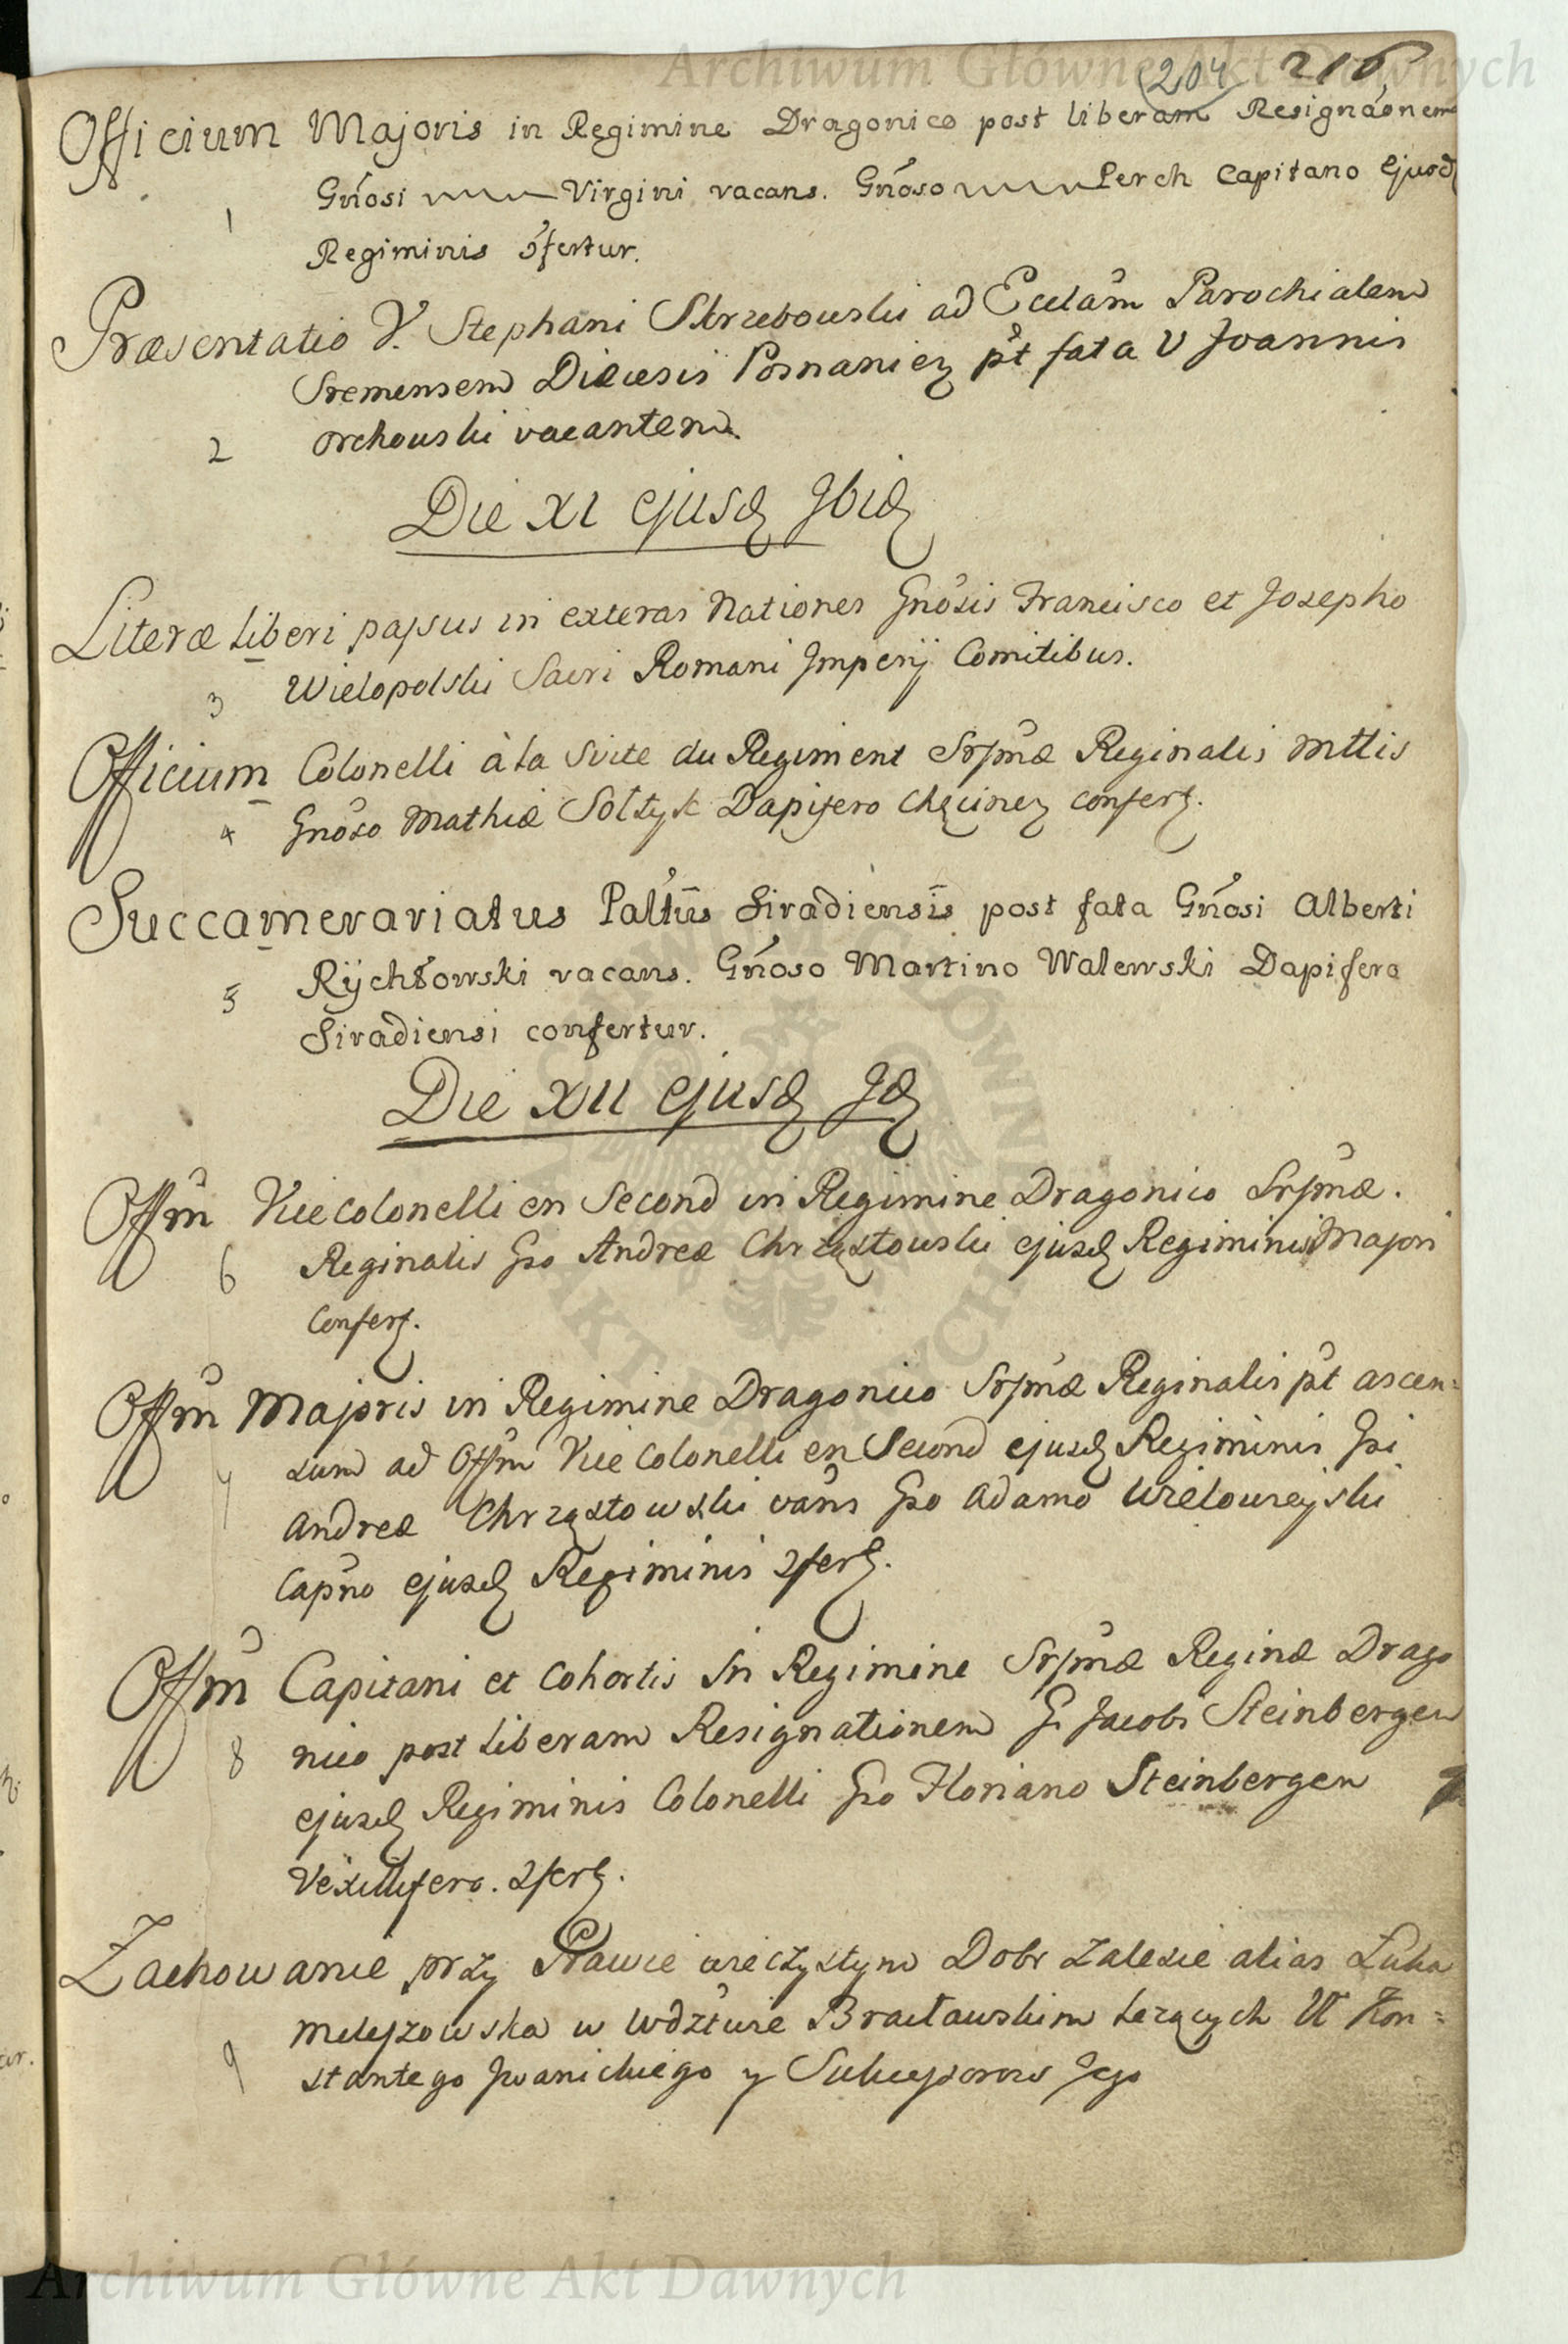 Archiwum Główne Akt Dawnych
204 216
Officium Majoris in Regimine Dragonico post liberam Resignaõnem
Gńosi Virgini vacans. Gńoso Lerch Capitano Ejusd
1
Regiminis ɔ̃fertur.
Præsentatio V. Stephani Skrzebowski ad Ecclãm Parochialem
Sremensem Diæcesis Posnanien pt̃ fata V Joannis
2 Orchowski vacantem.
Die XI ejusd Ibid
Literæ liberi passus in exteras Nationes Gnõsis Francisco et Josepho
3 Wielopolski Sacri Romani Imperij Comitibus.
Officium Colonelli à la Suite du Regiment Srsm̃æ Reginalis Mttis
4 Gnõso Mathiæ Sołtyk Dapifero Chęcinen confert.
Succamerariatus Paltũs Siradiensis post fata Gńosi Alberti
5 Rÿchłowski vacans. Gńoso Martino Walewski Dapifero
Siradiensi confertur.
Die XII ejusd Id
Offm̃ Vicecolonelli en Second in Regimine Dragonico Srsm̃æ.
6 Reginalis Gso Andreæ Chrząstowski ejusd Regiminis Majori
Confert.
Offm̃ Majoris in Regimine Dragonico Srsm̃æ Reginalis pt̃ ascen=
7 sum ad Offm̃ Vice Colonelli en Second ejusd Regiminis Gsi
Andreæ Chrząstowski vañs Gso Adamo Wielowieyski
Capñо ejusd Regiminis ɔfert.
Offm̃ Capitani et Cohortis In Regimine Srsm̃æ Reginæ Drago
8 nico post liberam Resignationem G. Jacobi Steinbergen
ejusd Regiminis Colonelli Gso Floriano Steinbergen
Vexillifero. ɔfert.
Zachowanie przy Prawie wieczystym Dobr Zalesie alias Łuka
Meleszowska w Wdztwie Bracławskim Lezących U Kon=
9 stantego Iwanickiego y Sukcessorow Jego
Archiwum Główne Akt Dawnych